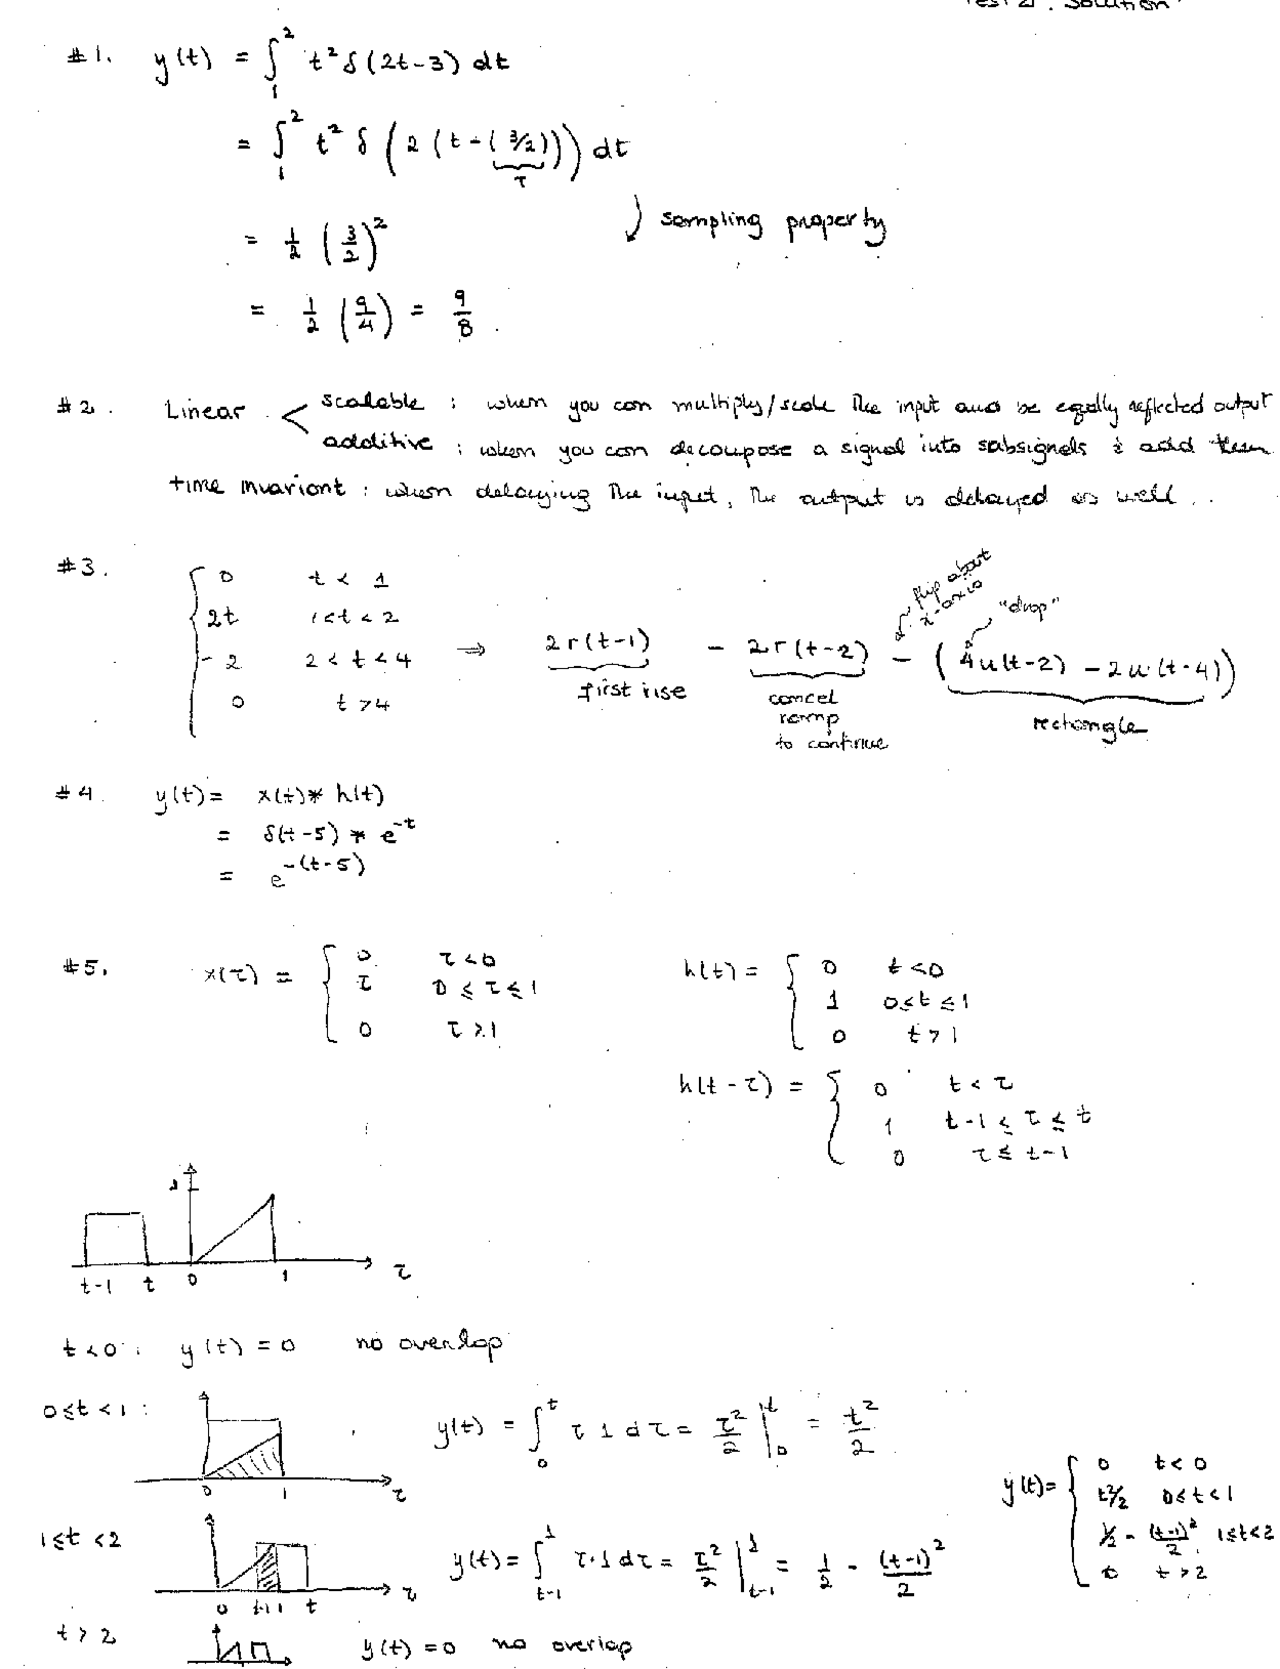 Test 2 : Solution
#1. y(t) = ∫₁² t² δ(2t-3) dt
= ∫₁² t² δ(2(t-(3/2))) dt
τ
↓ sampling property
= 1/2 (3/2)²
= 1/2 (9/4) = 9/8.
#2. Linear < scalable : when you can multiply/scale the input and be equally reflected output
additive : when you can decompose a signal into subsignals & add them
time invariant : when delaying the input, the output is delayed as well..
#3. { 0 t < 1
2t 1<t<2
-2 2<t<4
0 t>4
⇒ 2r(t-1) - 2r(t-2) - (4u(t-2) - 2u(t-4))
flip about x-axis
"drop"
first rise
cancel ramp to continue
rectangle
#4. y(t) = x(t) * h(t)
= δ(t-5) * e^-t
= e^-(t-5)
#5. x(τ) = { 0 τ<0
τ 0≤τ≤1
0 τ>1
h(t) = { 0 t<0
1 0≤t≤1
0 t>1
h(t-τ) = { 0 t<τ
1 t-1≤τ≤t
0 τ≤t-1
1
t-1 t 0 1 τ
t<0: y(t) = 0 no overlap
0≤t<1:
0 1 τ
y(t) = ∫₀ᵗ τ 1 dτ = τ²/2 |₀ᵗ = t²/2
1≤t<2
0 t-1 1 t τ
y(t) = ∫_{t-1}^1 τ·1 dτ = τ²/2 |_{t-1}^1 = 1/2 - (t-1)²/2
y(t) = { 0 t<0
t²/2 0≤t<1
1/2 - (t-1)²/2, 1≤t<2
0 t>2
t>2
y(t) = 0 no overlap